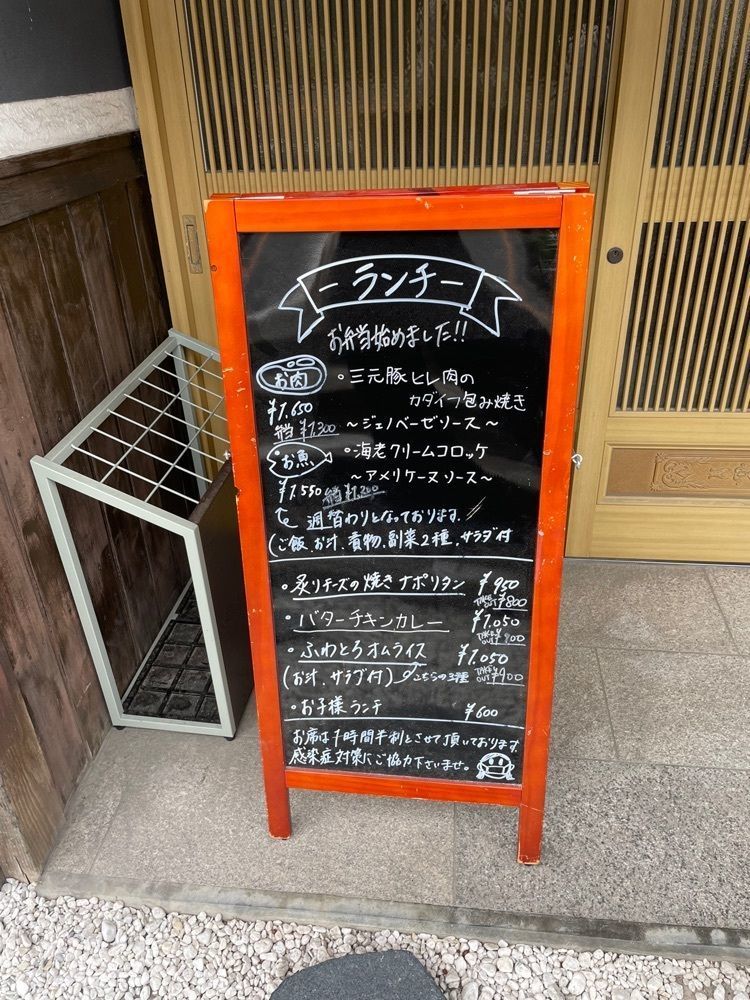 -ランチ-
お弁当始めました!!
お肉 ・三元豚ヒレ肉の
カダイフ包み焼き
¥1,650
弁当 ¥1,300 ~ジェノベーゼソース~
お魚 ・海老クリームコロッケ
~アメリケーヌソース~
¥1,550 弁当 ¥1,200
週替わりとなっております.
(ご飯、お汁、煮物、副菜2種、サラダ付
・炙りチーズの焼きナポリタン ¥950
TAKE OUT ¥800
・バターチキンカレー ¥1,050
TAKE OUT ¥900
・ふわとろオムライス ¥1,050
(お汁、サラダ付) こちらの3種 TAKE OUT ¥900
・お子様ランチ ¥600
お席は1時間半制とさせて頂いております.
感染症対策にご協力下さいませ。